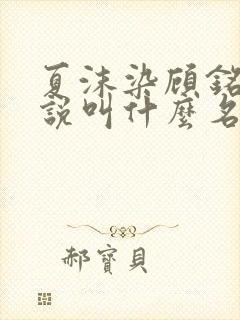 夏沫染顾銘
說叫什麼名
郝寶貝